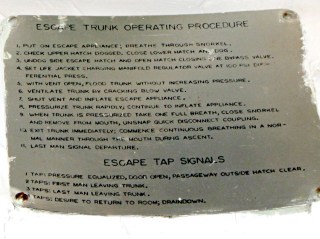 ESCAPE TRUNK OPERATING PROCEDURE
1. PUT ON ESCAPE APPLIANCE; BREATHE THROUGH SNORKEL.
2. CHECK UPPER HATCH DOGGED, CLOSE LOWER HATCH AND DOG.
3. UNDOG SIDE ESCAPE HATCH AND OPEN HATCH CLOSING BYPASS VALVE.
4. SET LIFE JACKET CHARGING MANIFOLD REGULATOR VALVE AT PSI DIF-
FERENTIAL PRESS.
5. WITH VENT OPEN, FLOOD TRUNK WITHOUT INCREASING PRESSURE.
6. VENTILATE TRUNK BY CRACKING BLOW VALVE.
7. SHUT VENT AND INFLATE ESCAPE APPLIANCE.
8. PRESSURIZE TRUNK RAPIDLY; CONTINUE TO INFLATE APPLIANCE.
9. WHEN TRUNK IS PRESSURIZED TAKE ONE FULL BREATH, CLOSE SNORKEL
AND REMOVE FROM MOUTH, UNSNAP QUICK DISCONNECT COUPLING.
10. EXIT TRUNK IMMEDIATELY; COMMENCE CONTINUOUS BREATHING IN A NOR-
MAL MANNER THROUGH THE MOUTH DURING ASCENT.
11. LAST MAN SIGNAL DEPARTURE.
ESCAPE TAP SIGNALS
1 TAP: PRESSURE EQUALIZED, DOOR OPEN, PASSAGEWAY OUTSIDE HATCH CLEAR.
2 TAPS: FIRST MAN LEAVING TRUNK.
3 TAPS: LAST MAN LEAVING TRUNK.
TAPS: DESIRE TO RETURN TO ROOM; DRAINDOWN.